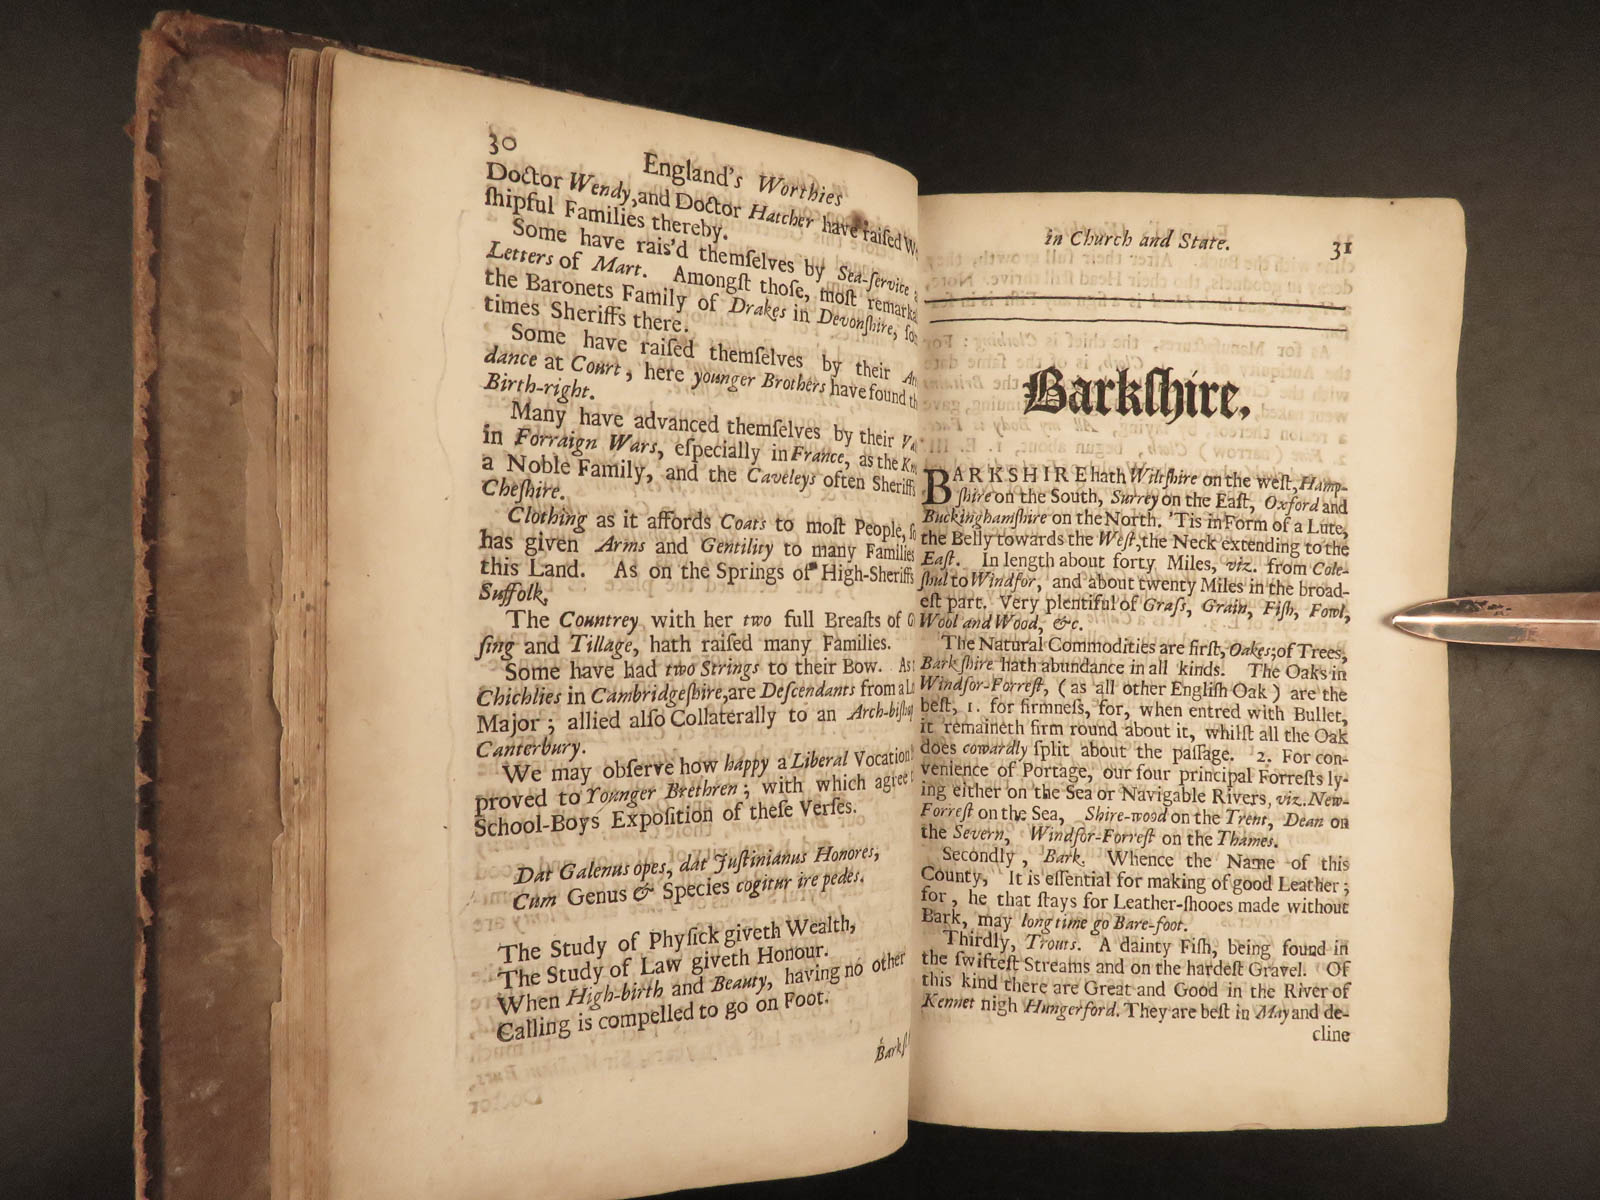 30
England's Worthies
Doctor Wendy, and Doctor Hatcher have raiſed
ſhipful Families thereby.
Some have rais'd themſelves by Sea-ſervice
Letters of Mart. Amongſt thoſe, moſt
the Baronets Family of Drakes in Devonſhire,
times Sheriffs there.
Some have raiſed themſelves by their
dance at Court, here younger Brothers have found
Birth-right.
Many have advanced themſelves by their
in Forraign Wars, eſpecially in France, as the
a Noble Family, and the Caveleys often Sheriffs
Cheſhire.
Clothing as it affords Coats to moſt People,
has given Arms and Gentility to many Families
this Land. As on the Springs of High-Sheriffs
Suffolk.
The Countrey with her two full Breaſts of
ſing and Tillage, hath raiſed many Families.
Some have had two Strings to their Bow.
Chichlies in Cambridgeſhire, are Deſcendants from a
Major; allied alſo Collaterally to an Arch-biſhop
Canterbury.
We may obſerve how happy a Liberal Vocation
proved to Younger Brethren; with which agree
School-Boys Expoſition of theſe Verſes.
Dat Galenus opes, dat Juſtinianus Honores,
Cum Genus & Species cogitur ire pedes.
The Study of Phyſick giveth Wealth,
The Study of Law giveth Honour.
When High-birth and Beauty, having no other
Calling is compelled to go on Foot.
in Church and State.
31
Barkſhire.
BARKSHIRE hath Wiltſhire on the weſt, Hamp-
ſhire on the South, Surrey on the Eaſt, Oxford and
Buckinghamſhire on the North. 'Tis in Form of a Lute,
the Belly towards the Weſt, the Neck extending to the
Eaſt. In length about forty Miles, viz. from Cole-
ſhul to Windſor, and about twenty Miles in the broad-
eſt part. Very plentiful of Graſs, Grain, Fiſh, Fowl,
Wool and Wood, &c.
The Natural Commodities are firſt, Oakes; of Trees,
Barkſhire hath abundance in all kinds. The Oaks in
Windſor-Forreſt, (as all other Engliſh Oak) are the
beſt, 1. for firmneſs, for, when entred with Bullet,
it remaineth firm round about it, whilſt all the Oak
does cowardly ſplit about the paſſage. 2. For con-
venience of Portage, our four principal Forreſts ly-
ing either on the Sea or Navigable Rivers, viz. New-
Forreſt on the Sea, Shire-wood on the Trent, Dean on
the Severn, Windſor-Forreſt on the Thames.
Secondly, Bark. Whence the Name of this
County, It is eſſential for making of good Leather;
for, he that ſtays for Leather-ſhooes made without
Bark, may long time go Bare-foot.
Thirdly, Trouts. A dainty Fiſh, being found in
the ſwifteſt Streams and on the hardeſt Gravel. Of
this kind there are Great and Good in the River of
Kennet nigh Hungerford. They are beſt in May and de-
cline